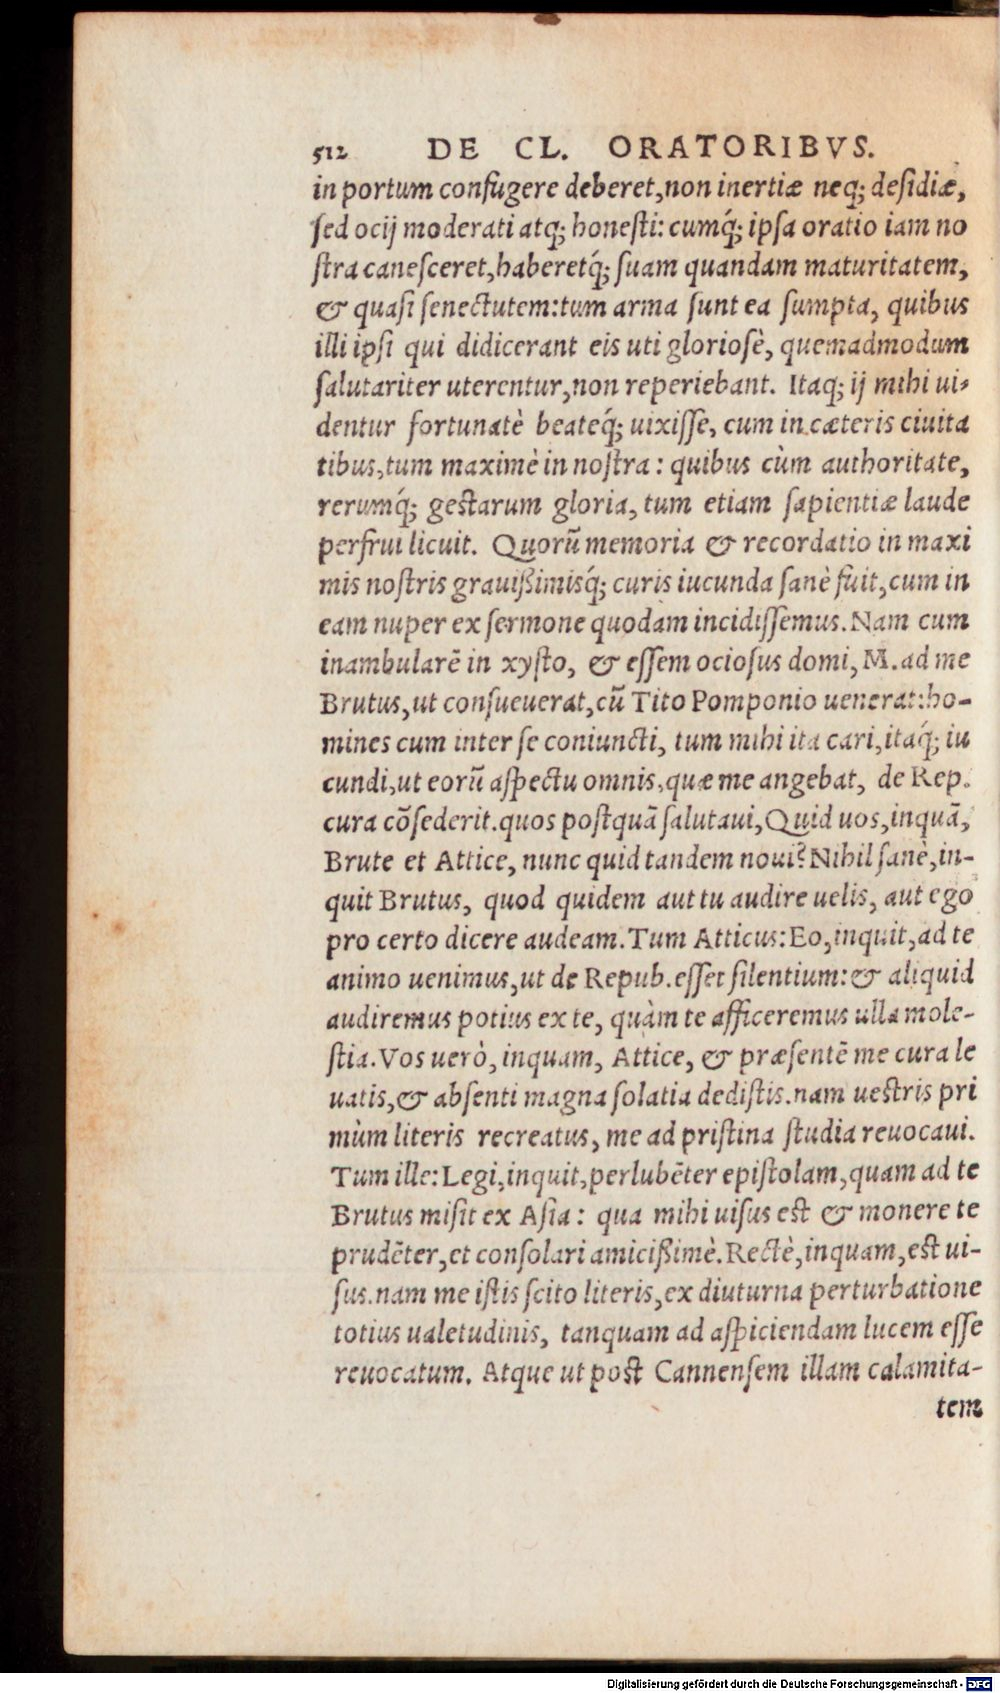 512 DE CL. ORATORIBVS.
in portum confugere deberet, non inertiæ neq; desidiæ,
sed ocij moderati atq; honesti: cumq́; ipsa oratio iam no
stra canesceret, haberetq́; suam quandam maturitatem,
& quasi senectutem: tum arma sunt ea sumpta, quibus
illi ipsi qui didicerant eis uti gloriosè, quemadmodum
salutariter uterentur, non reperiebant. Itaq; ij mihi ui-
dentur fortunatè beateq́; uixisse, cum in cæteris ciuita
tibus, tum maximè in nostra: quibus cùm authoritate,
rerumq́; gestarum gloria, tum etiam sapientiæ laude
perfrui licuit. Quorũ memoria & recordatio in maxi
mis nostris grauißimisq́; curis iucunda sanè fuit, cum in
eam nuper ex sermone quodam incidissemus. Nam cum
inambularẽ in xysto, & essem ociosus domi, M. ad me
Brutus, ut consueuerat, cũ Tito Pomponio uenerat: ho-
mines cum inter se coniuncti, tum mihi ita cari, itaq́; iu
cundi, ut eorũ aspectu omnis, quæ me angebat, de Rep.
cura cõsederit. quos postquã salutaui, Quid uos, inquã,
Brute et Attice, nunc quid tandem noui? Nihil sanè, in-
quit Brutus, quod quidem aut tu audire uelis, aut ego
pro certo dicere audeam. Tum Atticus: Eo, inquit, ad te
animo uenimus, ut de Repub. esset silentium: & aliquid
audiremus potius ex te, quàm te afficeremus ulla mole-
stia. Vos uerò, inquam, Attice, & præsentẽ me cura le
uatis, & absenti magna solatia dedistis. nam uestris pri
mùm literis recreatus, me ad pristina studia reuocaui.
Tum ille: Legi, inquit, perlubẽter epistolam, quam ad te
Brutus misit ex Asia: qua mihi uisus est & monere te
prudẽter, et consolari amicißimè. Rectè, inquam, est ui-
sus. nam me istis scito literis, ex diuturna perturbatione
totius ualetudinis, tanquam ad aspiciendam lucem esse
reuocatum. Atque ut post Cannensem illam calamita-
tem
Digitalisierung gefördert durch die Deutsche Forschungsgemeinschaft - DFG